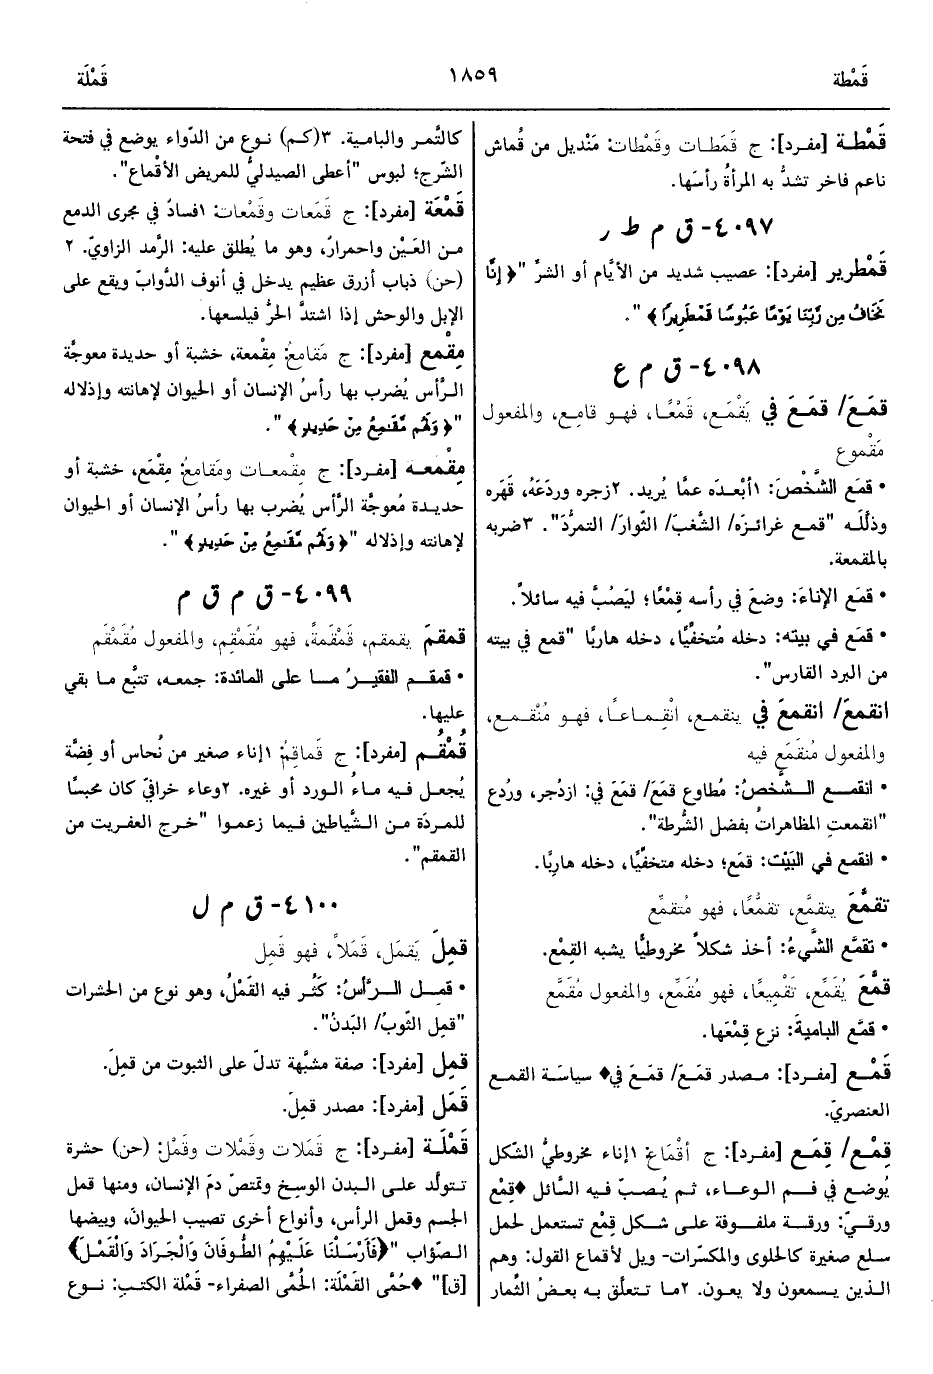 قَمْطة
١٨٥٩
قَمْلَة
قَمْطَة [مفرد]: ج قَمَطات وقَمْطات: مَنْديل من قُماش
ناعم فاخر تشدُّ به المرأةُ رأسَها.
٤٠٩٧- ق م ط ر
قَمْطَرير [مفرد]: عصيب شديد من الأيّام أو الشرّ "﴿ إِنَّا
نَخَافُ مِن رَّبِّنَا يَوْمًا عَبُوسًا قَمْطَرِيرًا ﴾ ".
٤٠٩٨- ق م ع
قمَعَ/ قمَعَ في يَقْمَع، قَمْعًا، فهو قامِع، والمفعول
مَقْموع
• قمَع الشَّخْصَ: ١أبْعدَه عمَّا يُريد. ٢زجره وردَعَهُ، قَهَره
وذلَّلَه "قمع غرائزَه/ الشَّغبَ/ الثّوارَ/ التمرُّدَ". ٣ضربه
بالمقمعة.
• قمَع الإناءَ: وضعَ في رأسه قِمْعًا؛ ليَصُبَّ فيه سائلاً.
• قمَع في بيته: دخله مُتخفِّيًا، دخله هاربًا "قمع في بيته
من البرد القارس".
انقمعَ/ انقمعَ في ينقمع، انْقِماعًا، فهو مُنْقمِع،
والمفعول مُنقمَع فيه
• انقمع الشَّخصُ: مُطاوع قمَعَ/ قمَعَ في: ازدُجر، ورُدع
"انقمعتِ المظاهراتُ بفضل الشّرطة".
• انقمع في البَيْت: قمَع؛ دخله متخفِّيًا، دخله هاربًا.
تقمَّعَ يتقمَّع، تقمُّعًا، فهو مُتقمِّع
• تقمَّع الشَّيءُ: أخذ شكلاً مخروطيًّا يشبه القِمْع.
قمَّعَ يُقَمِّع، تَقْمِيعًا، فهو مُقَمِّع، والمفعول مُقَمَّع
• قمَّع الباميةَ: نزع قِمْعَها.
قَمْع [مفرد]: مصدر قمَعَ/ قمَعَ في♦ سياسَة القمع
العنصريّ.
قِمْع/ قِمَع [مفرد]: ج أقْماع: ١إناء مخروطيُّ الشّكل
يُوضع في فم الوعاء، ثم يُصبّ فيه السَّائل ♦قِمْع
ورقيّ: ورقة ملفوفة على شكل قِمْع تستعمل لحمل
سلع صغيرة كالحلوى والمكسّرات- ويل لأقماع القول: وهم
الذين يسمعون ولا يعون. ٢ما تتعلّق به بعضُ الثّمار
كالتَّمر والبامية. ٣(كم) نوع من الدّواء يوضع في فتحة
الشّرج؛ لبوس "أعطى الصيدليُّ للمريض الأقْماع".
قَمَعَة [مفرد]: ج قَمَعات وقَمْعات: ١فسادٌ في مجرى الدمع
من العَيْن واحمرارٌ، وهو ما يُطلق عليه: الرّمد الزاويّ. ٢
(حن) ذباب أزرق عظيم يدخل في أنوف الدَّوابّ ويقع على
الإبل والوحش إذا اشتدَّ الحرُّ فيلسعها.
مِقْمع [مفرد]: ج مَقامِعُ: مِقْمعة، خشبة أو حديدة معوجَّة
الرَّأس يُضرب بها رأسُ الإنسان أو الحيوان لإهانته وإذلاله
"﴿ وَلَهُم مَّقَامِعُ مِنْ حَدِيدٍ ﴾ ".
مِقْمعة [مفرد]: ج مِقْمعات ومَقامعُ: مِقْمَع، خشبة أو
حديدة مُعوجَّة الرَّأس يُضرب بها رأسُ الإنسان أو الحيوان
لإهانته وإذلاله "﴿ وَلَهُم مَّقَامِعُ مِنْ حَدِيدٍ ﴾ ".
٤٠٩٩- ق م ق م
قمقمَ يقمقم، قَمْقمةً، فهو مُقَمْقِم، والمفعول مُقَمْقَم
• قمقم الفقيرُ ما على المائدة: جمعه، تتبَّع ما بقي
عليها.
قُمْقُم [مفرد]: ج قَماقِمُ: ١إناء صغير من نُحاس أو فِضَّة
يُجعل فيه ماءُ الورد أو غيره. ٢وعاء خرافيّ كان محبسًا
للمردَة من الشَّياطين فيما زعموا "خرج العفريت من
القمقم".
٤١٠٠- ق م ل
قمِلَ يَقمَل، قَمَلاً، فهو قَمِل
• قمِل الرَّأسُ: كَثُر فيه القَمْلُ، وهو نوع من الحشرات
"قمِل الثّوبُ/ البَدنُ".
قَمِل [مفرد]: صفة مشبَّهة تدلّ على الثبوت من قمِلَ.
قَمَل [مفرد]: مصدر قمِلَ.
قَمْلَة [مفرد]: ج قَمَلات وقَمْلات وقَمْل: (حن) حشرة
تتولَّد على البدن الوسِخ وتمتصّ دمَ الإنسان، ومنها قمل
الجسم وقمل الرأس، وأنواع أخرى تصيب الحيوانَ، وبيضها
الصّؤاب "﴿فَأَرْسَلْنَا عَلَيْهِمُ الطُّوفَانَ وَالْجَرَادَ وَالْقَمْلَ﴾
[ق]" ♦حُمَّى القَمْلة: الحُمَّى الصفراء- قَمْلة الكتب: نوع